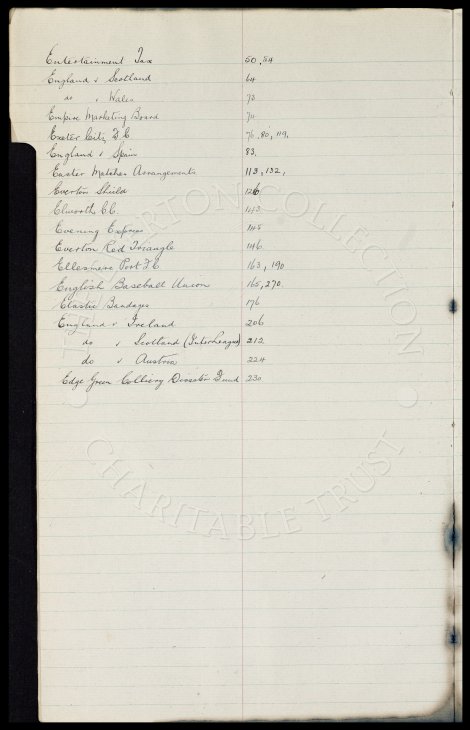 Entertainment Tax 50, 54
England v Scotland 64
do v Wales 73
Empire Marketing Board 74
Exeter City F.C 76, 80, 119,
England v Spain 83.
Easter Matches Arrangements 113, 132,
Everton Shield 126
Elworth C.C. 143
Evening Express 145
Everton Red Triangle 146
Ellesmere Port F.C. 163, 190
English Baseball Union 165, 270
Elastic Bandages 176
England v Ireland 206
do v Scotland (Interleague) 212
do v Austria 224
Edge Green Colliery Disaster Fund 230
EVERTON COLLECTION
CHARITABLE TRUST